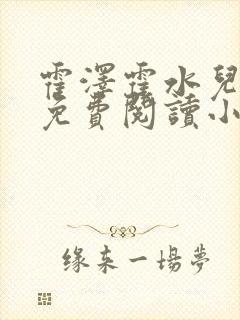 霍澤霍水兒
免費閱讀小
緣來一場夢